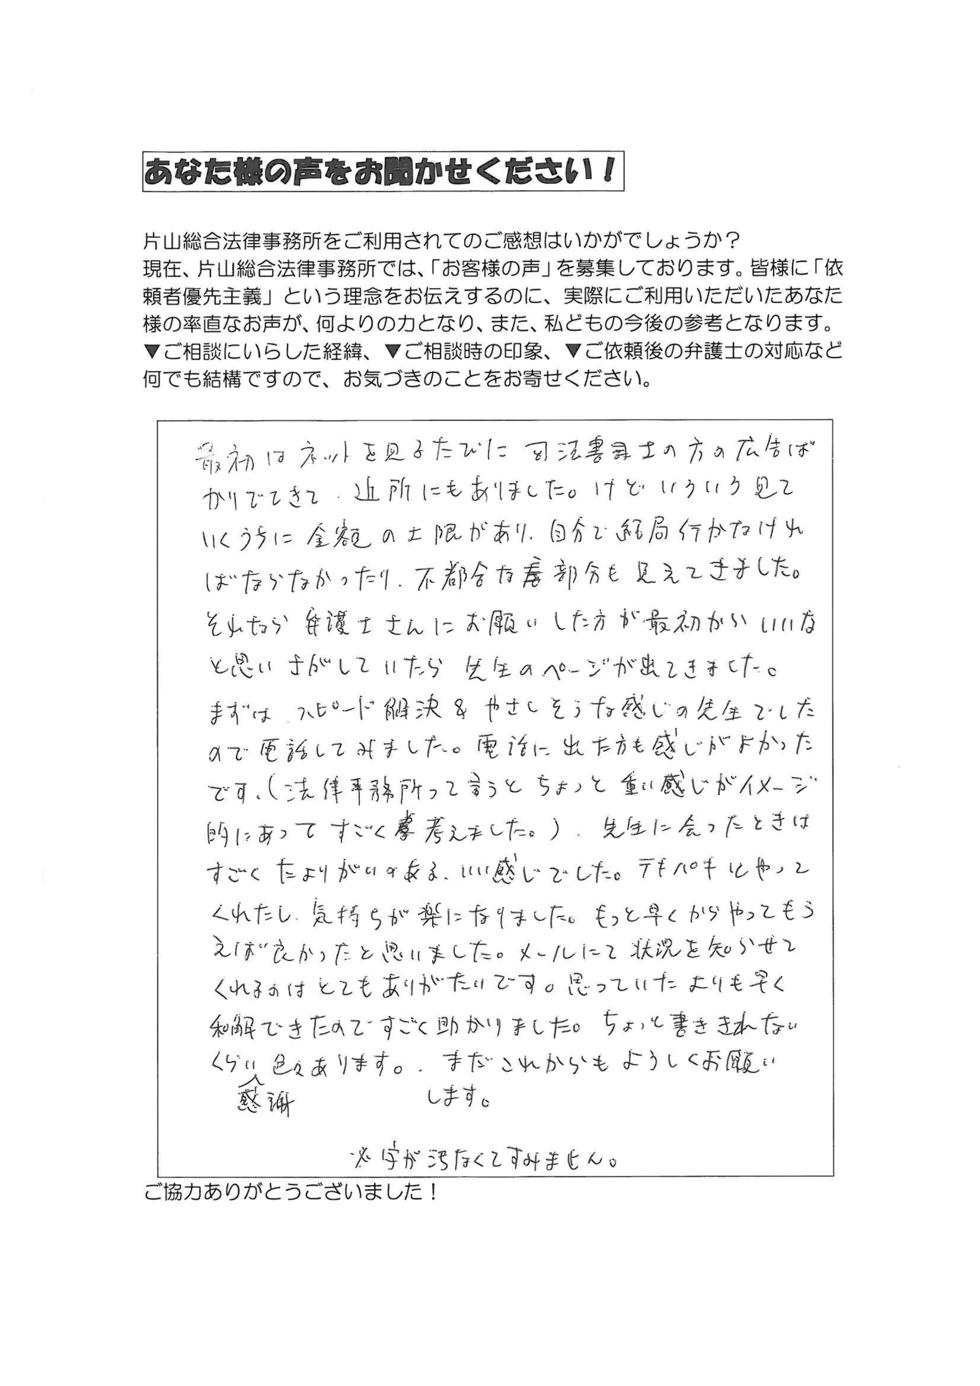 あなた様の声をお聞かせください！
片山総合法律事務所をご利用されてのご感想はいかがでしょうか？
現在、片山総合法律事務所では、「お客様の声」を募集しております。皆様に「依
頼者優先主義」という理念をお伝えするのに、実際にご利用いただいたあなた
様の率直なお声が、何よりの力となり、また、私どもの今後の参考となります。
▼ご相談にいらした経緯、▼ご相談時の印象、▼ご依頼後の弁護士の対応など
何でも結構ですので、お気づきのことをお寄せください。
最初はネットを見るたびに 司法書士の方の広告ば
かりでてきて、近所にもありました。けどいろいろ見て
いくうちに金額の上限があり、自分で結局行かなけれ
ばならなかったり、不都合な部分も見えてきました。
それなら弁護士さんにお願いした方が最初からいいな
と思いさがしていたら 先生のページが出てきました。
まずは、スピード解決＆やさしそうな感じの先生でした
ので電話してみました。電話に出た方も感じがよかった
です、（法律事務所って言うとちょっと重い感じがイメージ
的にあってすごく考えました。）、先生に会ったときは
すごくたよりがいのある、いい感じでした。テキパキとやって
くれたし、気持ちが楽になりました。もっと早くからやってもら
えば良かったと思いました。メールにて状況を知らせて
くれるのはとてもありがたいです。思っていたよりも早く
和解できたのですごく助かりました。ちょっと書ききれない
くらい感謝色々あります。、まだこれからもよろしくお願い
します。
※字が汚なくてすみません。
ご協力ありがとうございました！